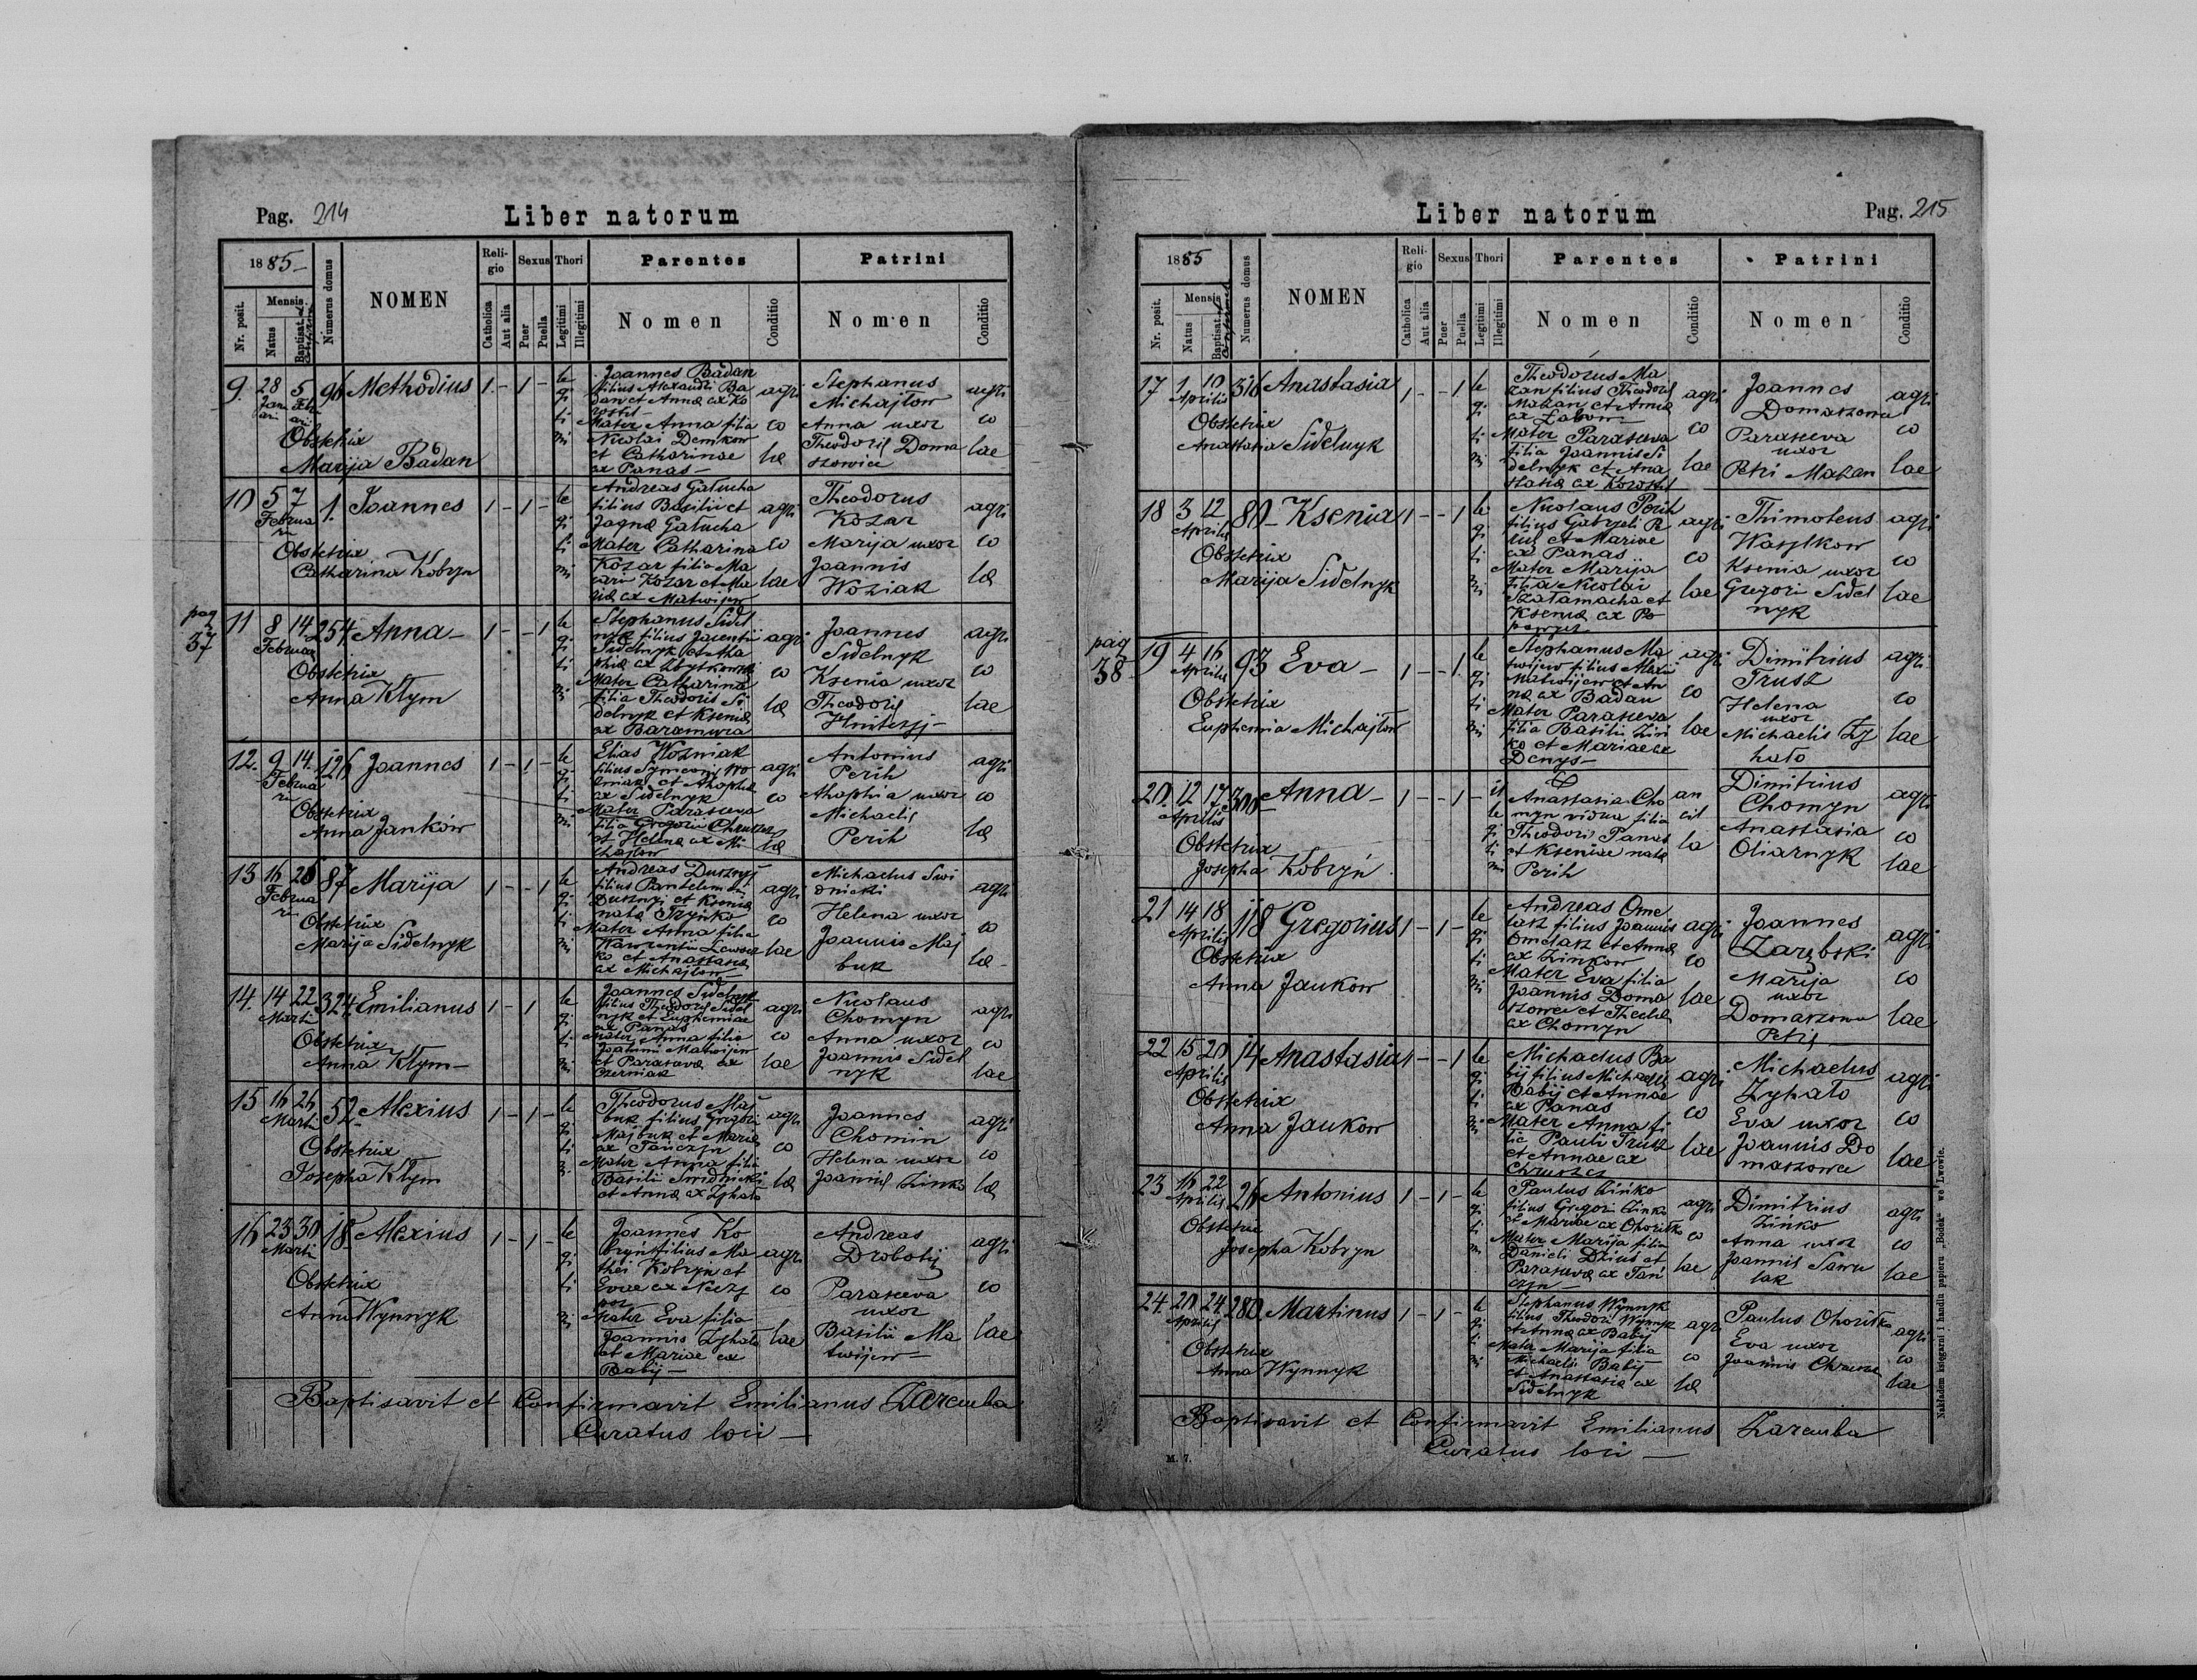 Pag. 214
Liber natorum
1885
Nr. posit.
Mensis
Natus
Baptisat. et confirm
Numerus domus
NOMEN
Religio
Catholica
Aut alia
Sexus
Puer
Puella
Thori
Legitimi
Illegitimi
Parentes
Nomen
Conditio
Patrini
Nomen
Conditio
9. 28 Januari 5 Februari 96 Methodius 1 - 1 - legitimi
Obstetrix
Marija Badan
Joannes Badan
filius Alexandri Ba
dan et Annæ ex Ko
rostil
Mater Anna filia
Nicolai Demkow
et Catharinae
ex Panas
agricolæ
Stephanus
Michajłow
Anna uxor
Theodoris Doma
szowicz
agricolae
10 5 7 Februari 1. Joannes 1 - 1 - legitimi
Obstetrix
Catharina Kobryn
Andreas Gałucha
filius Basilii et
Jagnæ Gałucha
Mater Catharina
Kozar filia Ma
carii Kozar et Ma
riæ ex Matwijew
agricolae
Theodorus
Kozar
Marija uxor
Joannis
Woźniak
agricolæ
pag 37
11 8 14 Februar 254 Anna 1 - - 1 legitimi
Obstetrix
Anna Kłym
Stephanus Sidel
nyk filius Jacentii
Sidelnyk et Aha
phiæ ex Zbytkowski
Mater Catharina
filia Theodoris Si
delnyk et Kseniæ
ex Baramura
agricolæ
Joannes
Sidelnyk
Ksenia uxor
Theodoris
Hniteryj
agricolae
12. 9 14. Februari 126 Joannes 1 - 1 - legitimi
Obstetrix
Anna Janków
Elias Wozniak
filius Symeonis Wo
zniak et Ahaphiæ
ex Sidelnyk
Mater Parasceva
filia Gregorii Chruszcz
et Helenæ ex Mi
chajłow
agricolæ
Antonius
Perih
Ahaphia uxor
Michaelis
Perih
agricolæ
13 16 26 Februari 87 Marija 1 - - 1 legitimi
Obstetrix
Marija Sidelnyk
Andreas Dusznyj
filius Pantelemon
Dusznyj et Kseniæ
natæ Fryńko
Mater Anna filia
Wawrentii Lewsz
ko et Anastasiæ
ex Michajłow
agricolae
Michaelus Swi
dnicki
Helena uxor
Joannis Maj
buk
agricolæ
14. 14 22 Marti 324 Emilianus 1 - 1 legitimi
Obstetrix
Anna Kłym
Joannes Sidelnyk
filius Theodoris Sidel
nyk et Euphemiae
ex Panas
Mater Anna filia
Joakimi Matwijew
et Parascevæ ex
Czerniak
agricolae
Nicolaus
Chomyn
Anna uxor
Joannis Sidel
nyk
agricolae
15 16 26 Marti 52 Alexius 1 - 1 - legitimi
Obstetrix
Josepha Kłym
Theodorus Maj
buk filius Gregori
Majbuk et Mariæ
ex Tańczyn
Mater Anna filia
Basilii Swidnicki
et Annæ ex Zyhało
agricolæ
Joannes
Chomin
Helena uxor
Joannis Zinko
agricolæ
16 23 30 Marti 18 Alexius 1 - 1 - legitimi
Obstetrix
Anna Wynnyk
Joannes Ko
bryn filius Ma
thei Kobryn et
Evae ex Neczy
por
Mater Eva filia
Joannis Zyhało
et Mariae ex
Babij
agricolae
Andreas
Drobotij
Parasceva
uxor
Basilii Ma
twijew
agricolae
Baptisavit et Confirmavit Emilianus Zaremba
Curatus loci
Liber natorum
Pag. 215
1885
Nr. posit.
Mensis
Natus
Baptisat.
Numerus domus
NOMEN
Religio
Catholica
Aut alia
Sexus
Puer
Puella
Thori
Legitimi
Illegitimi
Parentes
Nomen
Conditio
Patrini
Nomen
Conditio
17 1 10 Aprilis 316 Anastasia 1 - - 1 legitimi
Obstetrix
Anastasia Sidelnyk
Theodorus Ma
zan filius Theodoris
Mazan et Annæ
ex Zabow
Mater Parasceva
filia Joannis Si
delnyk et Ana
stasiæ ex Korostil
agricolae
Joannes
Domaszowa
Parasceva
uxor
Petri Mazan
agricolae
18 3 12 Aprilis 80 Ksenia 1 - - 1 legitimi
Obstetrix
Marija Sidelnyk
Nicolaus Perih
filius Gabryeli Pe
rih et Mariae
ex Panas
Mater Marija
filia Nicolai
Szałamacha et
Kseniæ ex Po
agricolae
Thimoteus
Wasylkow
Ksenia uxor
Gregori Sidel
nyk
agricolae
pag 38
19 4 16 Aprilis 93 Eva 1 - - 1. legitimi
Obstetrix
Euphemia Michajłow
Stephanus Ma
twijew filius Alexii
Matwijew et An
næ ex Badan
Mater Parasceva
filia Basilii Zin
ko et Mariae ex
Denys
agricolae
Dimitrius
Trusz
Helena
uxor
Michaelis Zy
hało
agricolae
20. 12 17 Aprilis 300 Anna 1 - - 1 - illegitimi
Obstetrix
Josepha Kobryń
Anastasia Cho
myn vidua filia
Theodoris Panas
et Kseniae natæ
Perih
ancilla
Dimitrius
Chomyn
Anastasia
Oliarnyk
agricolae
21 14 18 Aprilis 118 Gregorius 1 - 1 - legitimi
Obstetrix
Anna Jankow
Andreas Ome
lasz filius Joannis
Omelasz et Annæ
ex Zinkow
Mater Eva filia
Joannis Doma
szowa et Theclæ
ex Chomyn
agricolae
Joannes
Zarębski
Marija
uxor
Domaszowa
Petri
agricolae
22 15 20 Aprilis 14 Anastasia 1 - - 1 legitimi
Obstetrix
Anna Jankow
Michaelus Ba
bij filius Michaelis
Babij et Annae
ex Panas
Mater Anna fi
lia Pauli Trusz
et Annae ex
Chruszcz
agricolae
Michaelus
Zyhało
Eva uxor
Joannis Do
maszowa
agricolae
23 16 22 Aprilis 26 Antonius 1 - 1 - legitimi
Obstetrix
Josepha Kobryn
Paulus Zińko
filius Gregori Zinko
et Mariae ex Ohoritko
Mater Marija filia
Danieli Dzius et
Parascevæ ex Tań
czyn
agricolae
Dimitrius
Zińko
Anna uxor
Joannis Sawu
lak
agricolae
24. 20 24 Aprilis 280 Martinus 1 - 1 - legitimi
Obstetrix
Anna Wynnyk
Stephanus Wynnyk
filius Theodori Wynnyk
et Annæ ex Babij
Mater Marija filia
Michaelis Babij
et Anastasiæ ex
Sidelnyk
agricolæ
Paulus Ohoritko
Eva uxor
Joannis
agricolae
Baptisavit et Confirmavit Emilianus Zaremba
Curatus loci
M. 7.
Nakładem księgarni i handlu papieru „Bodek“ we Lwowie.